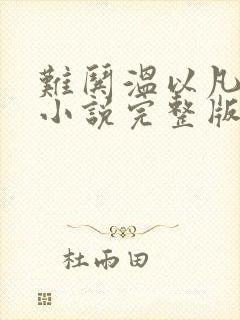 難鬨溫以凡
小說完整版
杜雨田